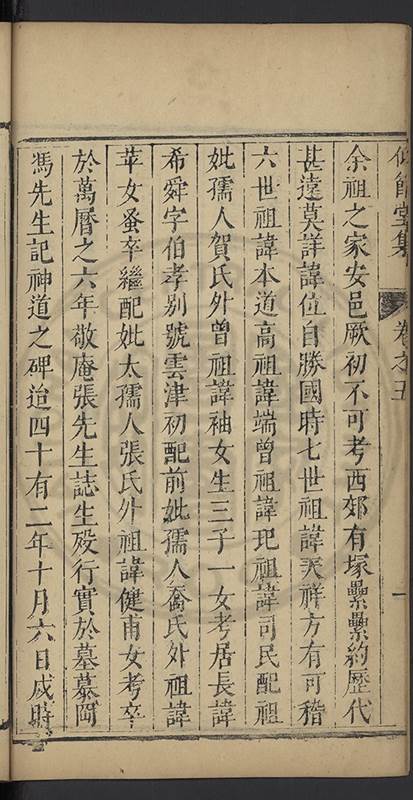 仰節堂集 卷之五 一
余祖之家安邑厥初不可考西郊有塚纍纍約歷代
甚遠莫詳諱位自勝國時七世祖諱天祥方有可稽
六世祖諱本道高祖諱端曾祖諱玘祖諱司民配祖
妣孺人賀氏外曾祖諱袖女生三子一女考居長諱
希舜字伯孝別號雲津初配前妣孺人喬氏外祖諱
苹女蚤卒繼配妣太孺人張氏外祖諱健甫女考卒
於萬曆之六年敬庵張先生誌生歿行實於墓墓阿
馮先生記神道之碑迨四十有二年十月六日戌時